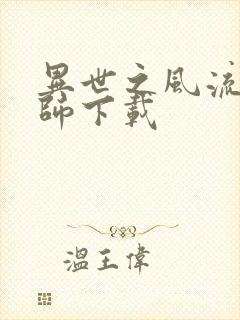 異世之風流
師下載
溫王偉